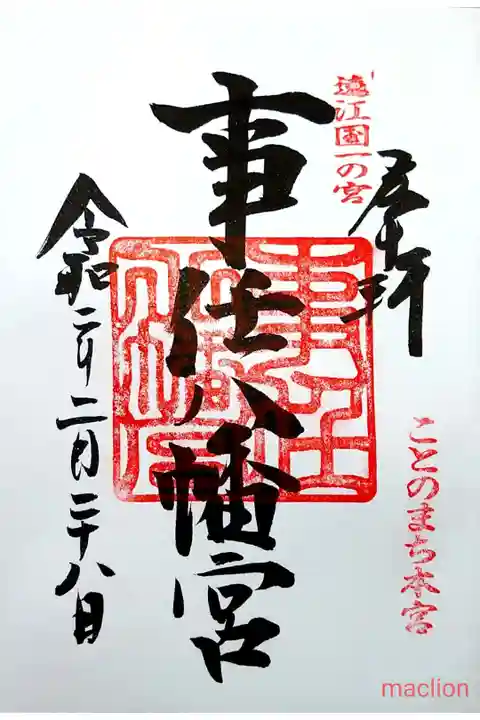 奉拝
遠江國一の宮
ことのまち本宮
事任八幡宮
令和二年二月二十八日
maclion